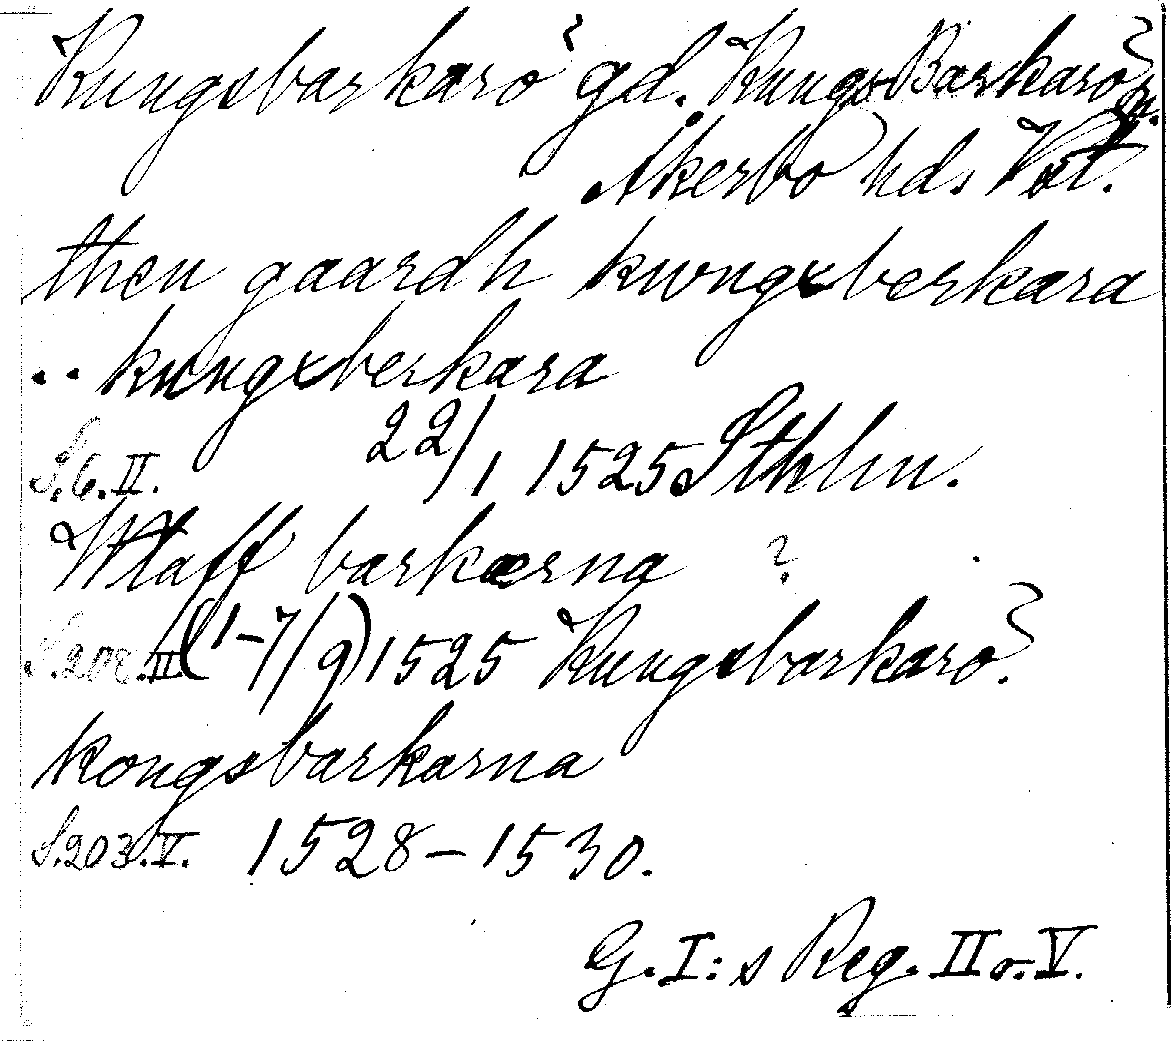 Kungsbarkarö gd. Kungs-Barkarö sn.
Åkerbo hd. Vstl.
then gaardh kwngxberkara
.. kungxberkara
S.6.II. 22/1 1525 Sthlm.
Wlaff barkærna ?
S.208.II (1-7/9) 1525 Kungsbarkarö.
kongsbarkarna
S.203.V. 1528-1530.
G.I:s Reg. II o. V.